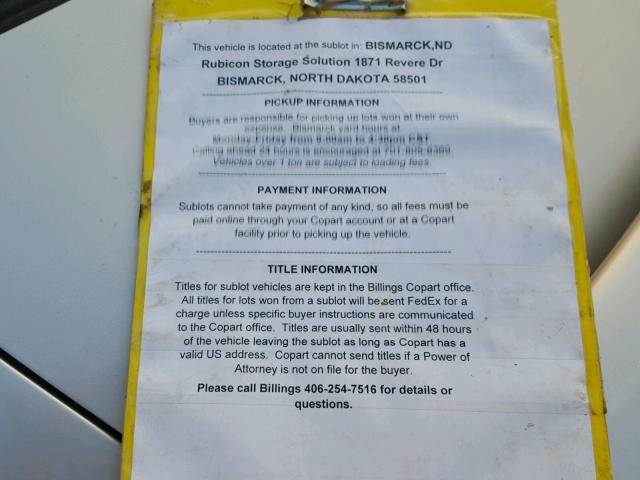 This vehicle is located at the sublot in: BISMARCK,ND
Rubicon Storage Solution 1871 Revere Dr
BISMARCK, NORTH DAKOTA 58501
PICKUP INFORMATION
Buyers are responsible for picking up lots won at their own
expense. Bismarck yard hours at
Monday-Friday from to CST
Calling ahead 24 hours is encouraged at
Vehicles over 1 ton are subject to loading fees.
PAYMENT INFORMATION
Sublots cannot take payment of any kind, so all fees must be
paid online through your Copart account or at a Copart
facility prior to picking up the vehicle.
TITLE INFORMATION
Titles for sublot vehicles are kept in the Billings Copart office.
All titles for lots won from a sublot will be sent FedEx for a
charge unless specific buyer instructions are communicated
to the Copart office. Titles are usually sent within 48 hours
of the vehicle leaving the sublot as long as Copart has a
valid US address. Copart cannot send titles if a Power of
Attorney is not on file for the buyer.
Please call Billings 406-254-7516 for details or
questions.